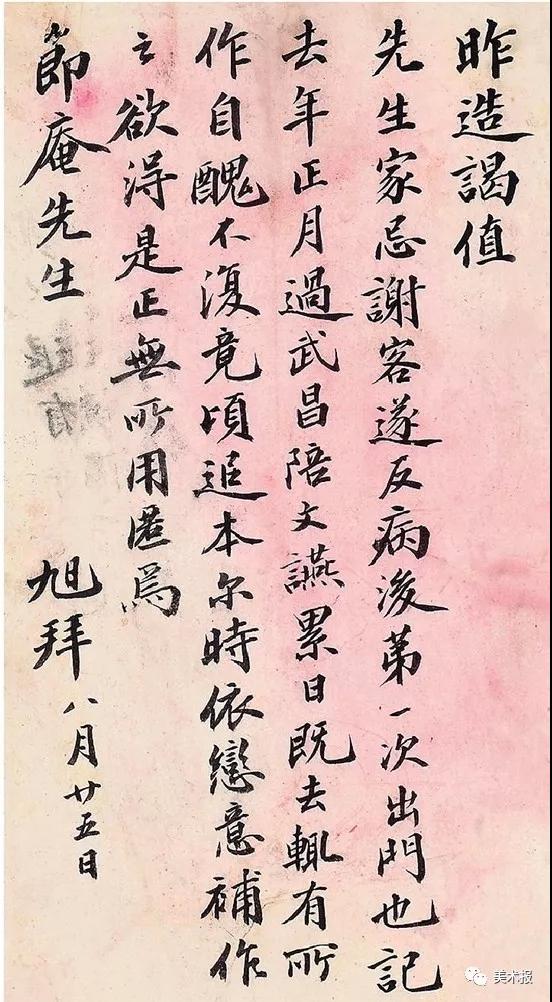 昨造謁值
先生家忌謝客遂反病後第一次出門也記
去年正月過武昌陪文讌累日既去輒有所
作自醜不復竟頃追本尔時依戀意補作
云欲得是正無所用匿焉
節庵先生
旭拜 八月廿五日
美术报